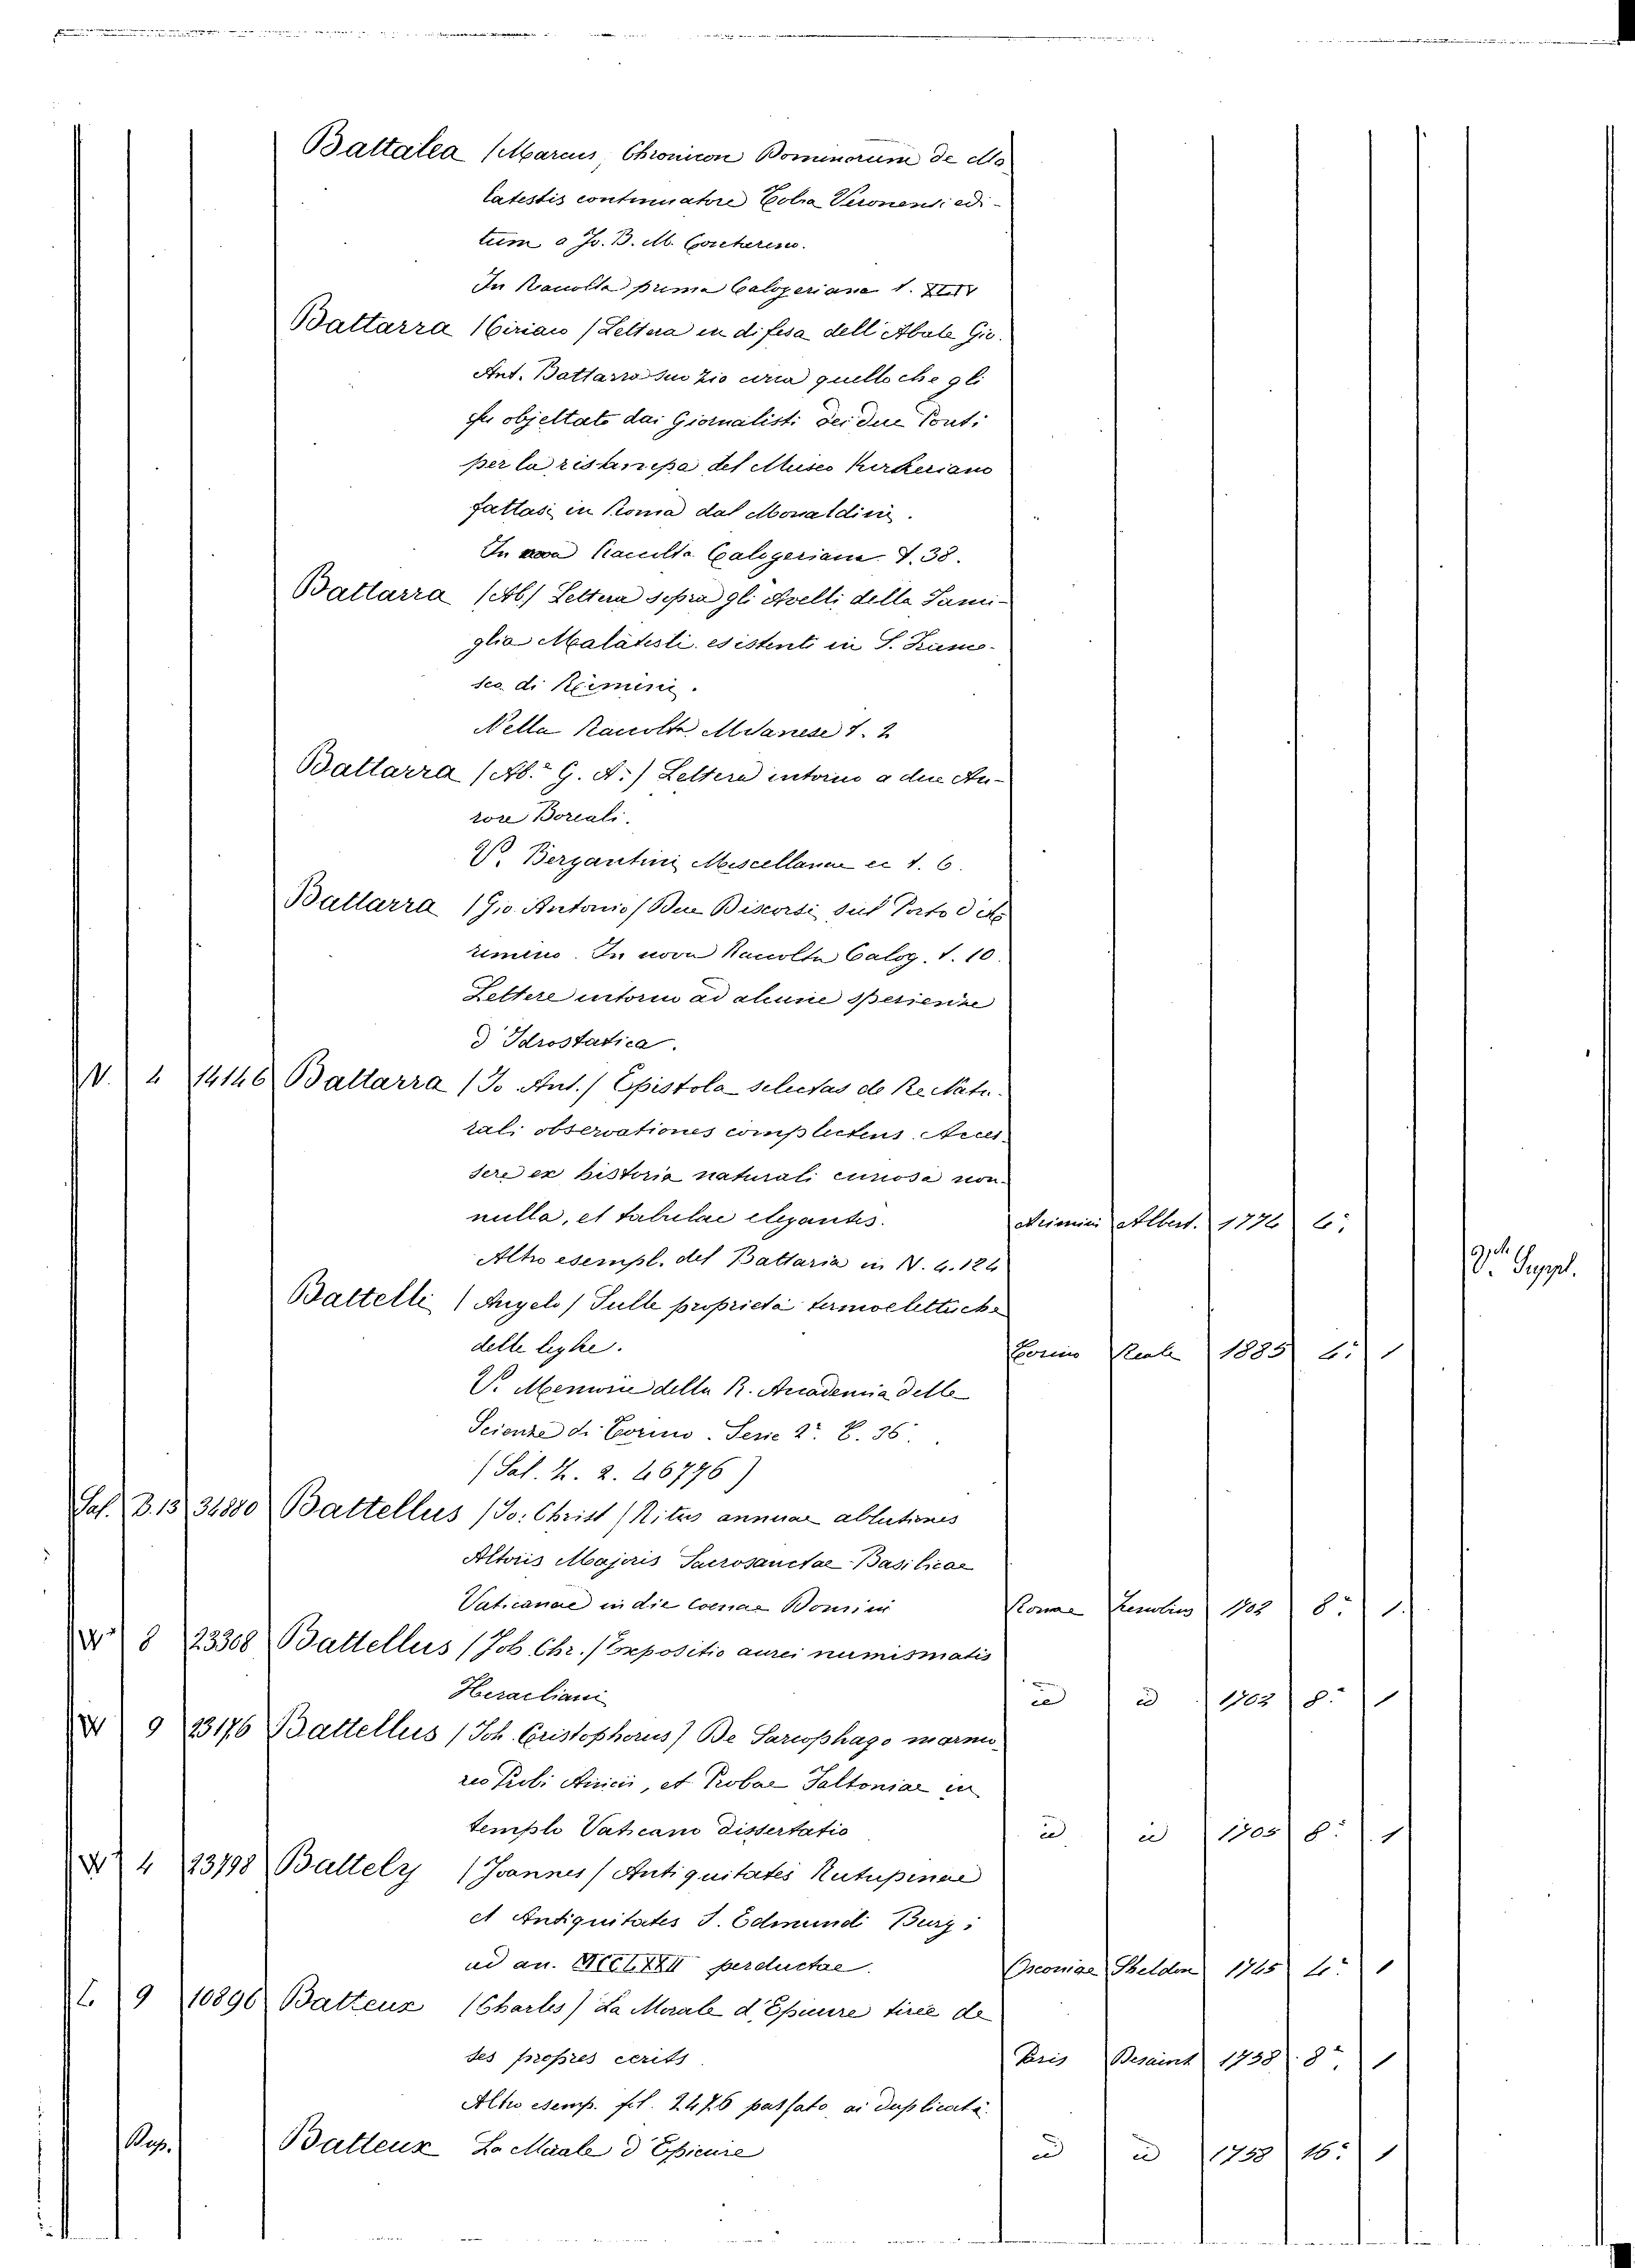 Battalea (Marcus, Chronicon Dominorum de Ma
latestis continuatore Veronensi edi-
tum a Jo. B. M.
In Raccolta prima Calogeriana t. XLIV
Battarra (Ciriaco / Lettera in difesa dell' Abate Gio.
Ant. Battarra suo zio circa quello che gli
fu objettato dai Giornalisti dei due Ponti
per la ristampa del Museo Kirkeriano
fattasi in Roma dal Monaldini.
In nova Raccolta Calogeriana T. 38.
Battarra (Ab/ Lettera sopra gli Avelli della Fami-
glia Malatesti esistenti in S. France-
sco di Rimini.
Nella Raccolta Milanese t. 2
Battarra (Ab.e G. A.) Lettera intorno a due Au-
rore Boreali.
V. Bergantini Miscellanee ec t. 6.
Battarra (Gio. Antonio / Due Discorsi sul Porto d' A
rimino. In nova Raccolta Calog. t. 10.
Lettere intorno ad alcune sperienze
d' Idrostatica.
V. 4 14146 Battarra (Jo Ant./ Epistola selectas de Re Natu-
rali observationes complectens. Acces-
sere ex historia naturali curiosa non-
nulla, et tabulae elegantes. Arimini Albert. 1774 4.°
Altro esempl. del Battaria in V. 4. 124
Battelli (Angelo / Sulle proprietà termoelettriche
V. Suppl.
delle leghe. Torino Reale 1885 4.° 1
V. Memorie della R. Accademia delle
Scienze di Torino. Serie 2.a T. 36.
(Sal. Z. 2. 46776)
Sal. Z. 13 34880 Battellus (Jo: Christ / Ritus annuae ablutionis
Altaris Majoris Sacrosanctae Basilicae
Vaticanae in die Coenae Domini Romae Zenobius 1702 8.° 1.
8 23308 Battellus (Job Chr. / Expositio aurei numismatis
Heracliani id id 1702 8.° 1
9 23176 Battellus (Joh. Cristophorus) De Sarcophago marmo-
reo Probi Anicii, et Probae Faltoniae in
templo Vaticano dissertatio id id 1705 8.° 1
4 23798 Battely (Joannes / Antiquitates Rutupinae
et Antiquitates S. Edmundi Burgi
ad an. MCCLXXII perductae. Oxoniae Sheldon 1745 4.° 1
L. 9 10896 Batteux (Charles) La Morale d'Epicure tirée de
ses propres écrits. Paris Desaint 1758 8.° 1
Altro esemp. fol. 2476 passato ai duplicati.
Batteux La Morale d' Epicure id id 1758 16.° 1